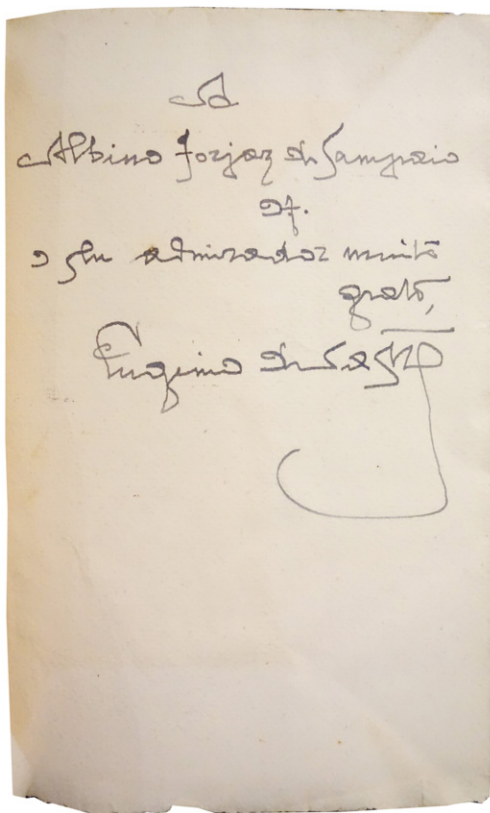 A
Albino Forjaz de Sampaio
of.
o seu admirador muito
grato,
Eugenio de Castro